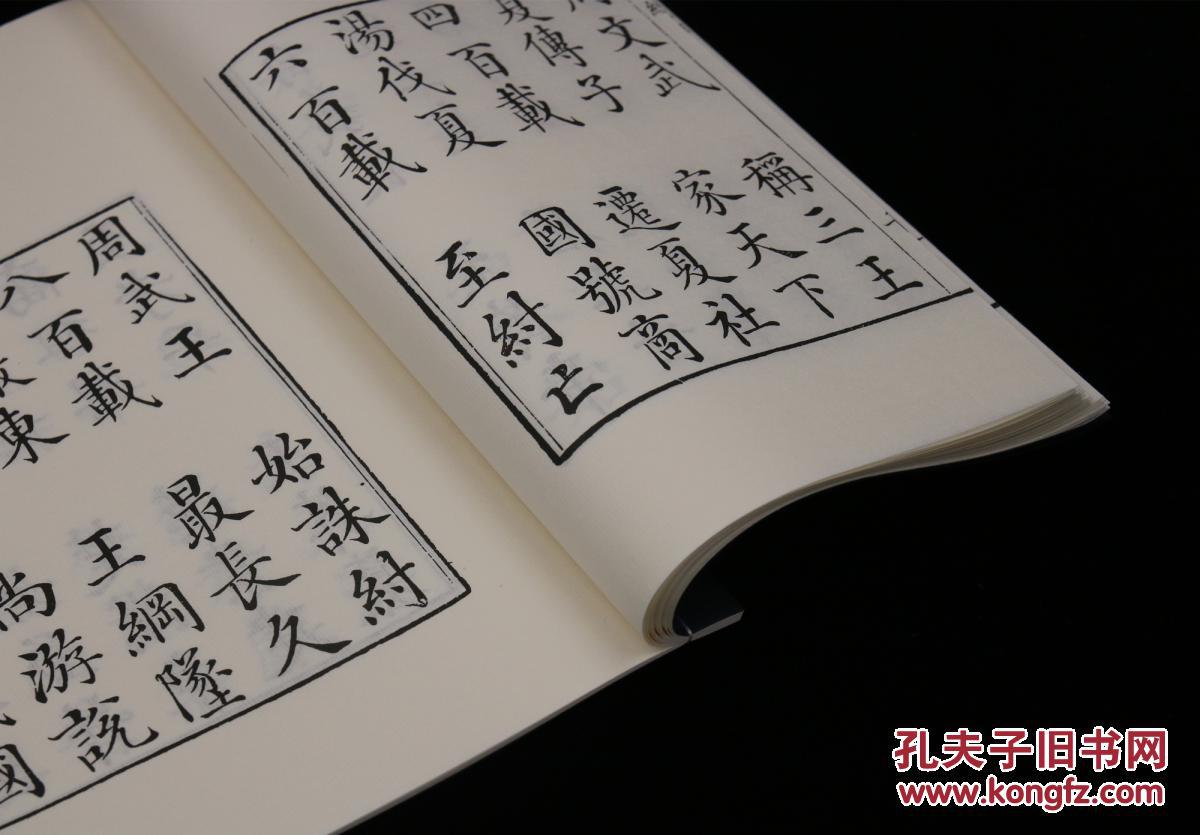 文武 稱三王
夏傳子 家天下
四百載 遷夏社
湯伐夏 國號商
六百載 至紂亡
周武王 始誅紂
八百載 最長久
東 王綱墜
尚游說
國
孔夫子旧书网
www.kongfz.com